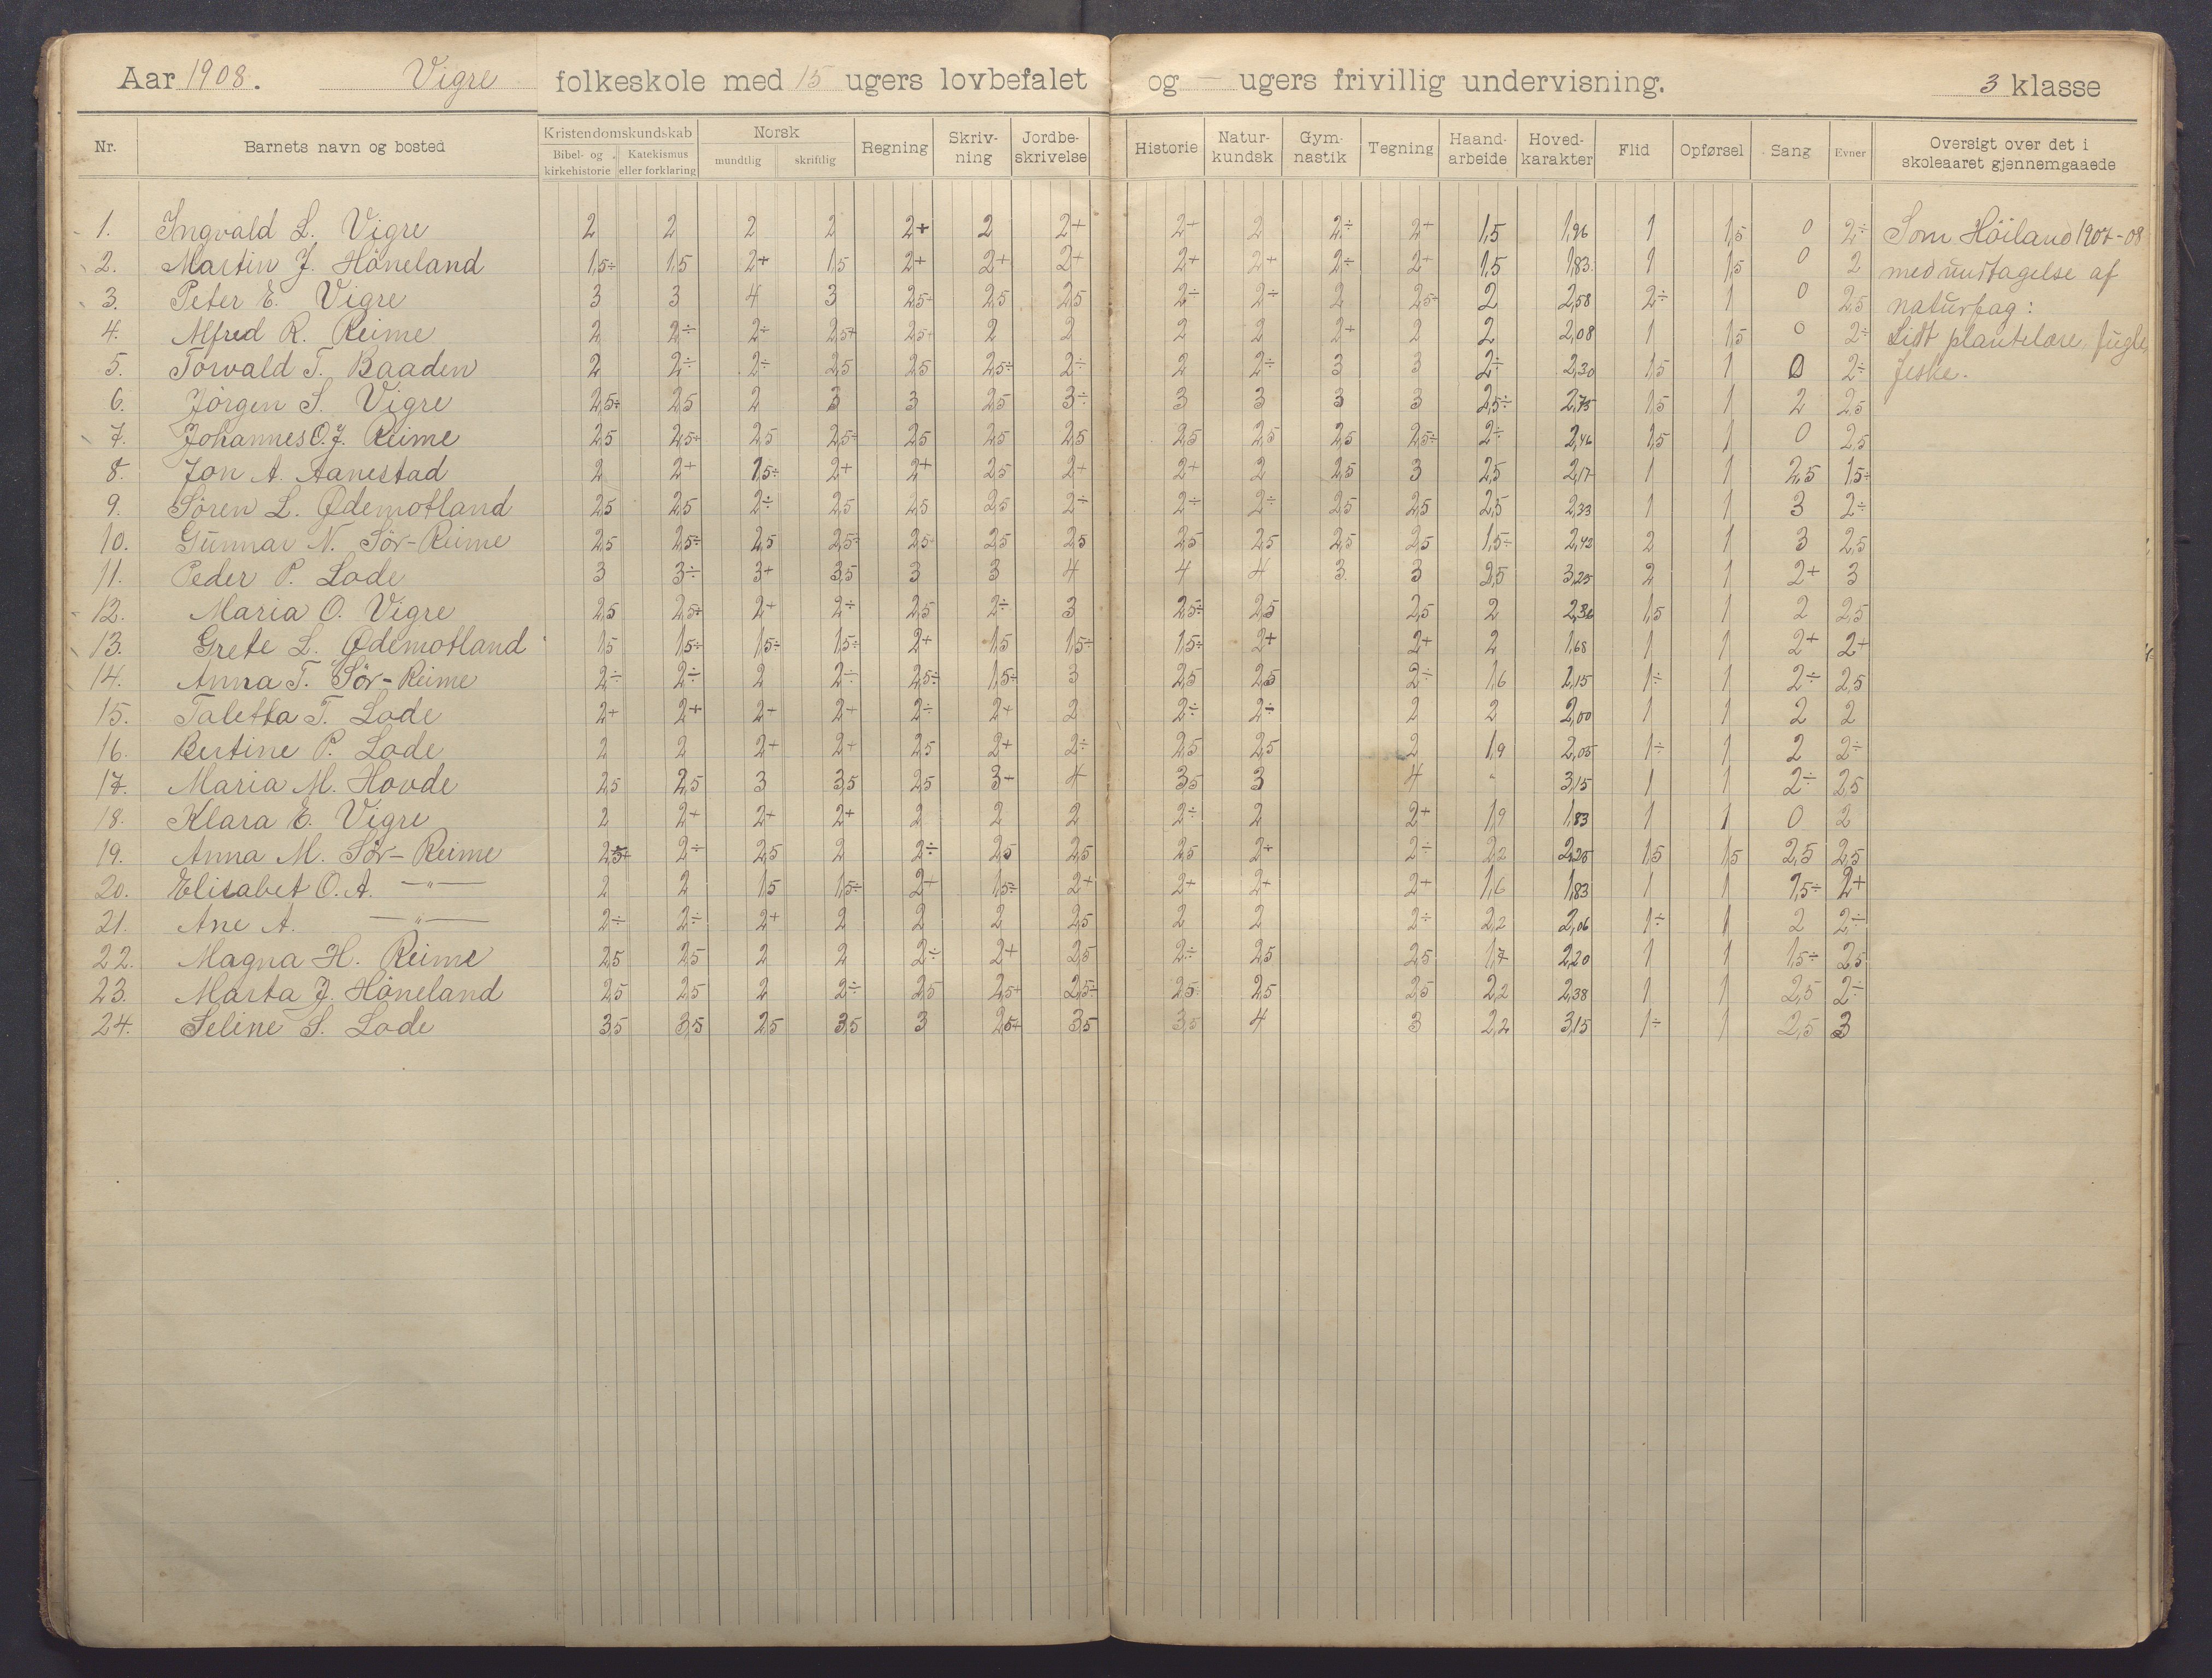 Aar 1908. Vigre folkeskole med 15 ugers lovbefalet og — ugers frivillig undervisning. 3 klasse
Nr. Barnets navn og bosted Kristendomskundskab Bibel- og kirkehistorie Katekismus eller forklaring Norsk mundtlig skriftlig Regning Skriv-ning Jordbe-skrivelse Historie Natur-kundsk Gym-nastik Tegning Haand-arbeide Hoved-karakter Flid Opførsel Sang Evner Oversigt over det i skoleaaret gjennemgaaede
1. Ingvald L. Vigre 2 2 2 2 2+ 2 2+ 2+ 2 2÷ 2+ 1,5 1,96 1 1,5 0 2÷ Som Höiland 1907-08
2. Martin J. Höneland 1,5÷ 1,5 2+ 1,5 2+ 2+ 2+ 2+ 2+ 2÷ 2+ 1,5 1,83 1 1,5 0 2 med undtagelse af
3. Peter E. Vigre 3 3 4 3 2,5÷ 2,5 2,5 2÷ 2÷ 2 2,5÷ 2 2,58 2÷ 1 0 2,5 naturfag:
4. Alfred R. Reime 2 2÷ 2÷ 2,5+ 2,5÷ 2 2 2 2 2+ 2 2 2,08 1 1,5 0 2÷ Lidt plantelære, fugle,
5. Torvald T. Baaden 2 2÷ 2÷ 2,5 2,5 2,5÷ 2÷ 2 2÷ 3 3 2÷ 2,30 1,5 1 0 2÷ feske.
6. Jörgen S. Vigre 2,5÷ 2,5 2 3 3 2,5 3÷ 3 3 3 3 2,5÷ 2,75 1,5 1 2 2,5
7. Johannes O.J. Reime 2,5 2,5÷ 2,5 2,5÷ 2,5 2,5 2,5 2,5 2,5 2,5 2,5÷ 2÷ 2,46 1,5 1 0 2,5
8. Jon A. Aanestad 2 2+ 1,5÷ 2+ 2+ 2,5 2+ 2+ 2 2,5 3 2,5 2,17 1 1 2,5 1,5÷
9. Sören L. Ødemotland 2,5 2,5 2÷ 2,5 2,5 2,5 2÷ 2÷ 2÷ 2,5 2,5 2,5 2,33 1 1 3 2÷
10. Gunnar N. Sör-Reime 2,5 2,5÷ 2,5 2,5÷ 2,5÷ 2,5 2,5 2,5 2,5 2,5 2,5 1,5÷ 2,42 2 1 3 2,5
11. Peder P. Lode 3 3÷ 3+ 3,5 3 3 4 4 4 3 3 2,5 3,25 2 1 2+ 3
12. Maria O. Vigre 2,5 2,5÷ 2+ 2÷ 2,5 2÷ 3 2,5÷ 2,5 2,5 2 2,36 1,5 1 2 2,5
13. Grete L. Ødemotland 1,5 1,5÷ 1,5÷ 1,5÷ 2+ 1,5 1,5÷ 1,5÷ 2+ 2+ 2 1,68 1 1 2+ 2+
14. Anna T. Sör-Reime 2÷ 2÷ 2 2÷ 2,5÷ 1,5÷ 3 2,5 2,5 2÷ 1,6 2,15 1÷ 1 2÷ 2,5
15. Taletta T. Lode 2+ 2+ 2+ 2+ 2÷ 2+ 2 2÷ 2÷ 2 2 2,00 1 1 2 2
16. Bertine P. Lode 2 2 2+ 2+ 2,5 2+ 2÷ 2,5 2,5 2 1,9 2,05 1÷ 1 2 2÷
17. Maria M. Hovde 2,5 2,5 3 3,5 2,5 3+ 4 3,5 3 4 " 3,15 1 1 2÷ 2,5
18. Klara E. Vigre 2 2+ 2+ 2+ 2 2 2 2÷ 2 2+ 1,9 1,83 1 1 0 2
19. Anna M. Sör-Reime 2,5+ 2÷ 2,5 2 2÷ 2,5 2,5 2,5 2÷ 2÷ 2,2 2,25 1,5 1,5 2,5 2,5
20. Elisabet O.A. —"— 2 2 1,5 1,5÷ 2+ 1,5÷ 2+ 2+ 2+ 2+ 1,6 1,83 1 1 1,5÷ 2+
21. Ane A. —"— 2÷ 2÷ 2+ 2 2 2 2,5 2 2 2÷ 2,2 2,06 1÷ 1 2 2÷
22. Magna H. Reime 2,5 2,5 2 2 2÷ 2+ 2,5 2÷ 2,5 2,5 1,7 2,20 1 1 1,5÷ 2,5
23. Marta J. Höneland 2,5 2,5 2 2÷ 2,5 2,5+ 2,5÷ 2,5÷ 2,5 2,5 2,2 2,38 1 1 2,5 2÷
24. Seline S. Lode 3,5 3,5 2,5 3,5 3 2,5+ 3,5 3,5 4 3 2,2 3,15 1÷ 1 2,5 3